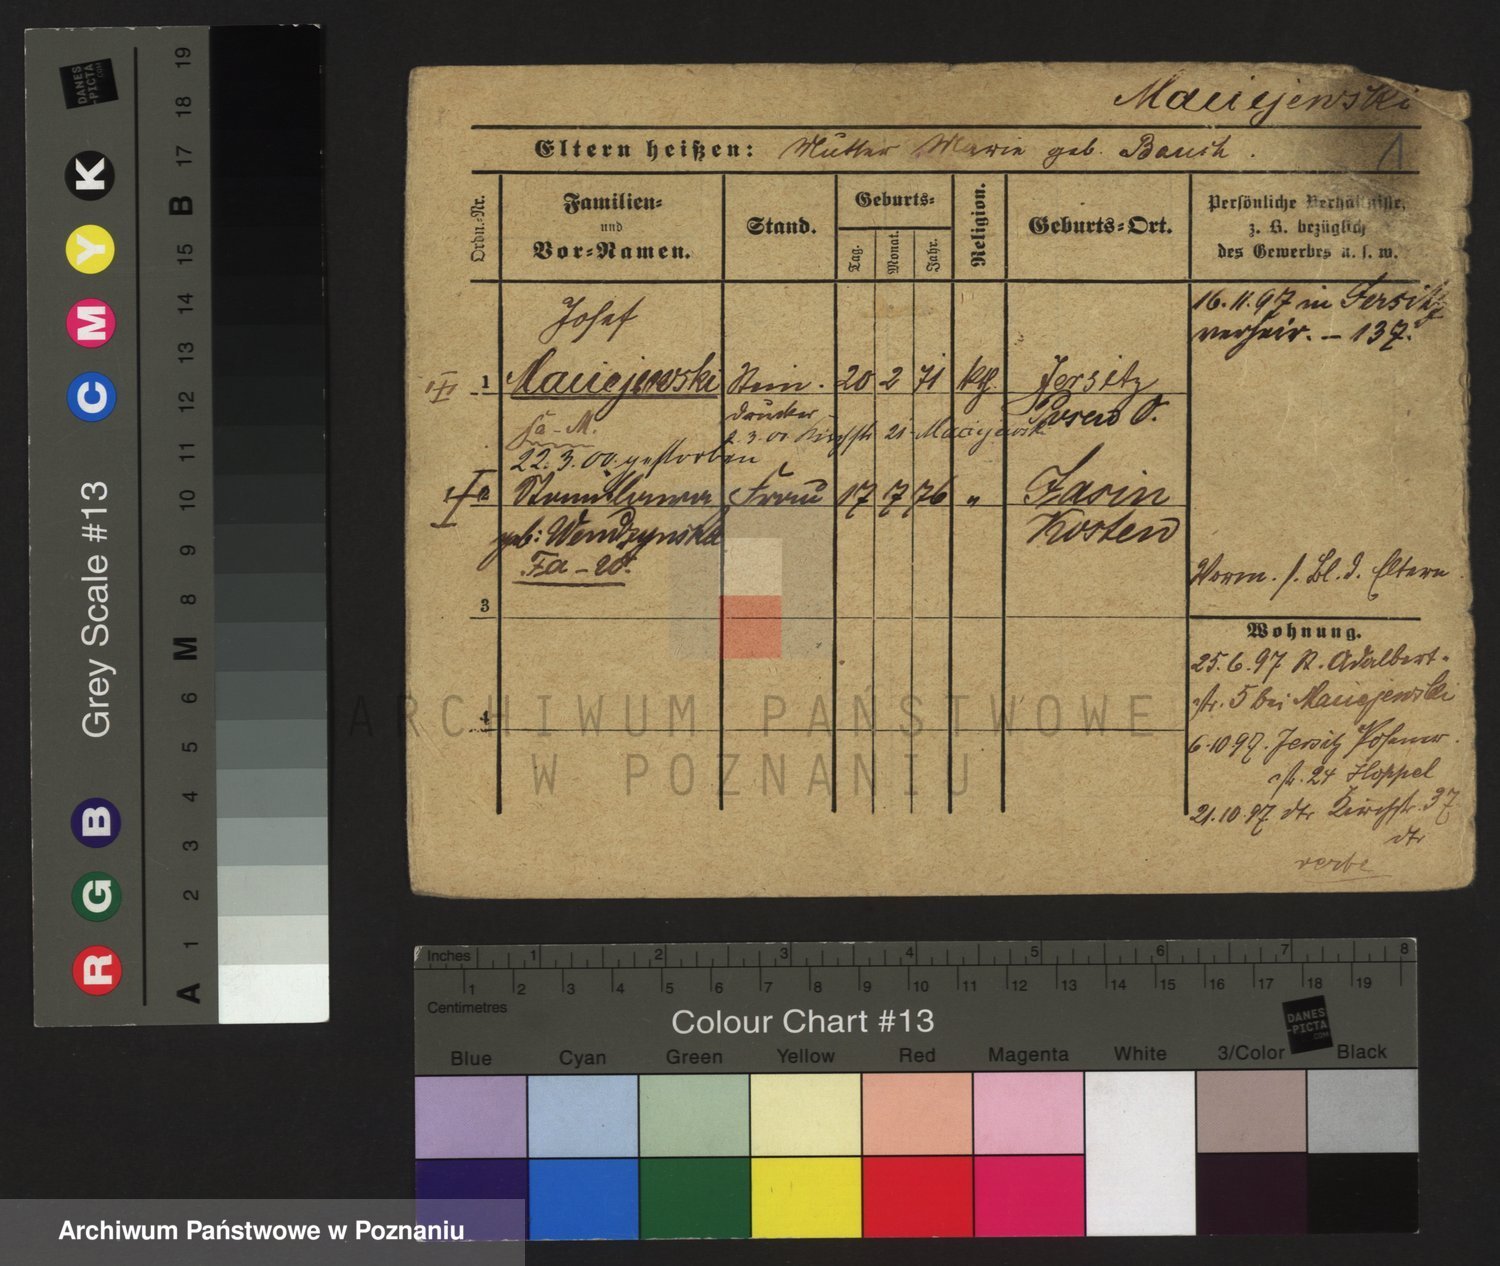 Maciejewski
Eltern heißen: Mutter Marie geb. Banich.
1
Ordn.=Nr.
Familien=
und
Vor=Namen.
Stand.
Geburts=
Tag.
Monat.
Jahr.
Religion.
Geburts=Ort.
Persönliche Verhältnisse,
z. B. bezüglich
des Gewerbes u. s. w.
16.11.97 in Jersitz
verheir. – 137.
Josef
1 Maciejewski Stein. 20 2 71 kth. Jersitz
drucker Posen O.
Fa – M.
2.3.00 Kirchstr 21 Maciejewski
22.3.00 gestorben
Stanislawa Frau 17 7 76 " Zasin
geb: Wendzynska Kosten
Fa – 20.
Vorm. s. Bl. d. Eltern
3
Wohnung.
25.6.97 K. Adalbert-
str. 5 bei Maciejewski
4
6.10 97. Jersitz Posener
str. 24 Hoppel
21.10.97 dtr Kirchstr. 37
dtr
verbe
ARCHIWUM PAŃSTWOWE
W POZNANIU
Grey Scale #13
R G B C M Y K
A 1 2 3 4 5 6 M 8 9 10 11 12 13 14 15 B 17 18 19
DANES
-PICTA
.COM
Inches 1 2 3 4 5 6 7 8
1 2 3 4 5 6 7 8 9 10 11 12 13 14 15 16 17 18 19
Centimetres
Colour Chart #13
DANES
-PICTA
.COM
Blue Cyan Green Yellow Red Magenta White 3/Color Black
Archiwum Państwowe w Poznaniu